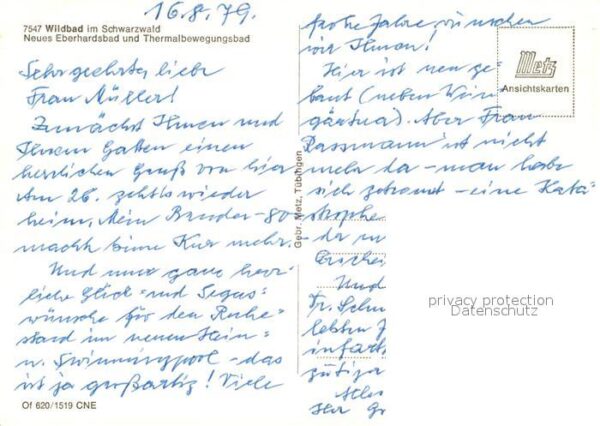 16.8.79.
7547 Wildbad im Schwarzwald
Neues Eberhardsbad und Thermalbewegungsbad
Sehr geehrte, liebe
Frau Müller!
Zunächst Ihnen und
Ihrem Gatten einen
herrlichen Gruß von hier
Am 26. geht's wieder
heim. Mein Bruder - 80
macht keine Kur mehr. -
Und nun ganz herz-
liche Glück- und Segens-
wünsche für den Ruhe-
stand im neuen Heim-
u. Swimmingpool - das
ist ja großartig! Viele
Of 620/1519 CNE
Gebr. Metz, Tübingen
frohe Jahre wünschen
wir Ihnen!
Hier ist neu ge-
baut (neben Wein
gärtner). Aber Frau
Rassmann ist nicht
mehr da - man habe
sich getrennt - eine Kata-
strophe
- der
Und
Fr.
letzten
infarkt
gütiger
Alles
Ihr
Metz
Ansichtskarten
privacy protection
Datenschutz